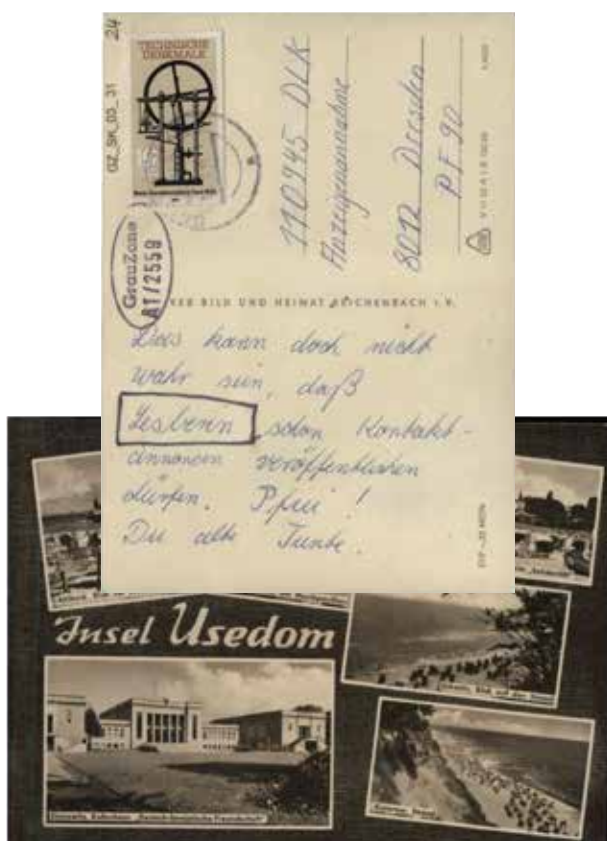 GZ_SK_03_31 24
TECHNISCHE
DENKMALE
GrauZone
A1/2559
110945 DLK
Anzeigenannahme
8012 Dresden
PF 90
VEB BILD UND HEIMAT REICHENBACH i. V.
Das kann doch nicht
wahr sein, daß
Lesberin schon Kontakt-
annoncen veröffentlichen
dürfen. Pfui !
Du alte Tunte.
Insel Usedom